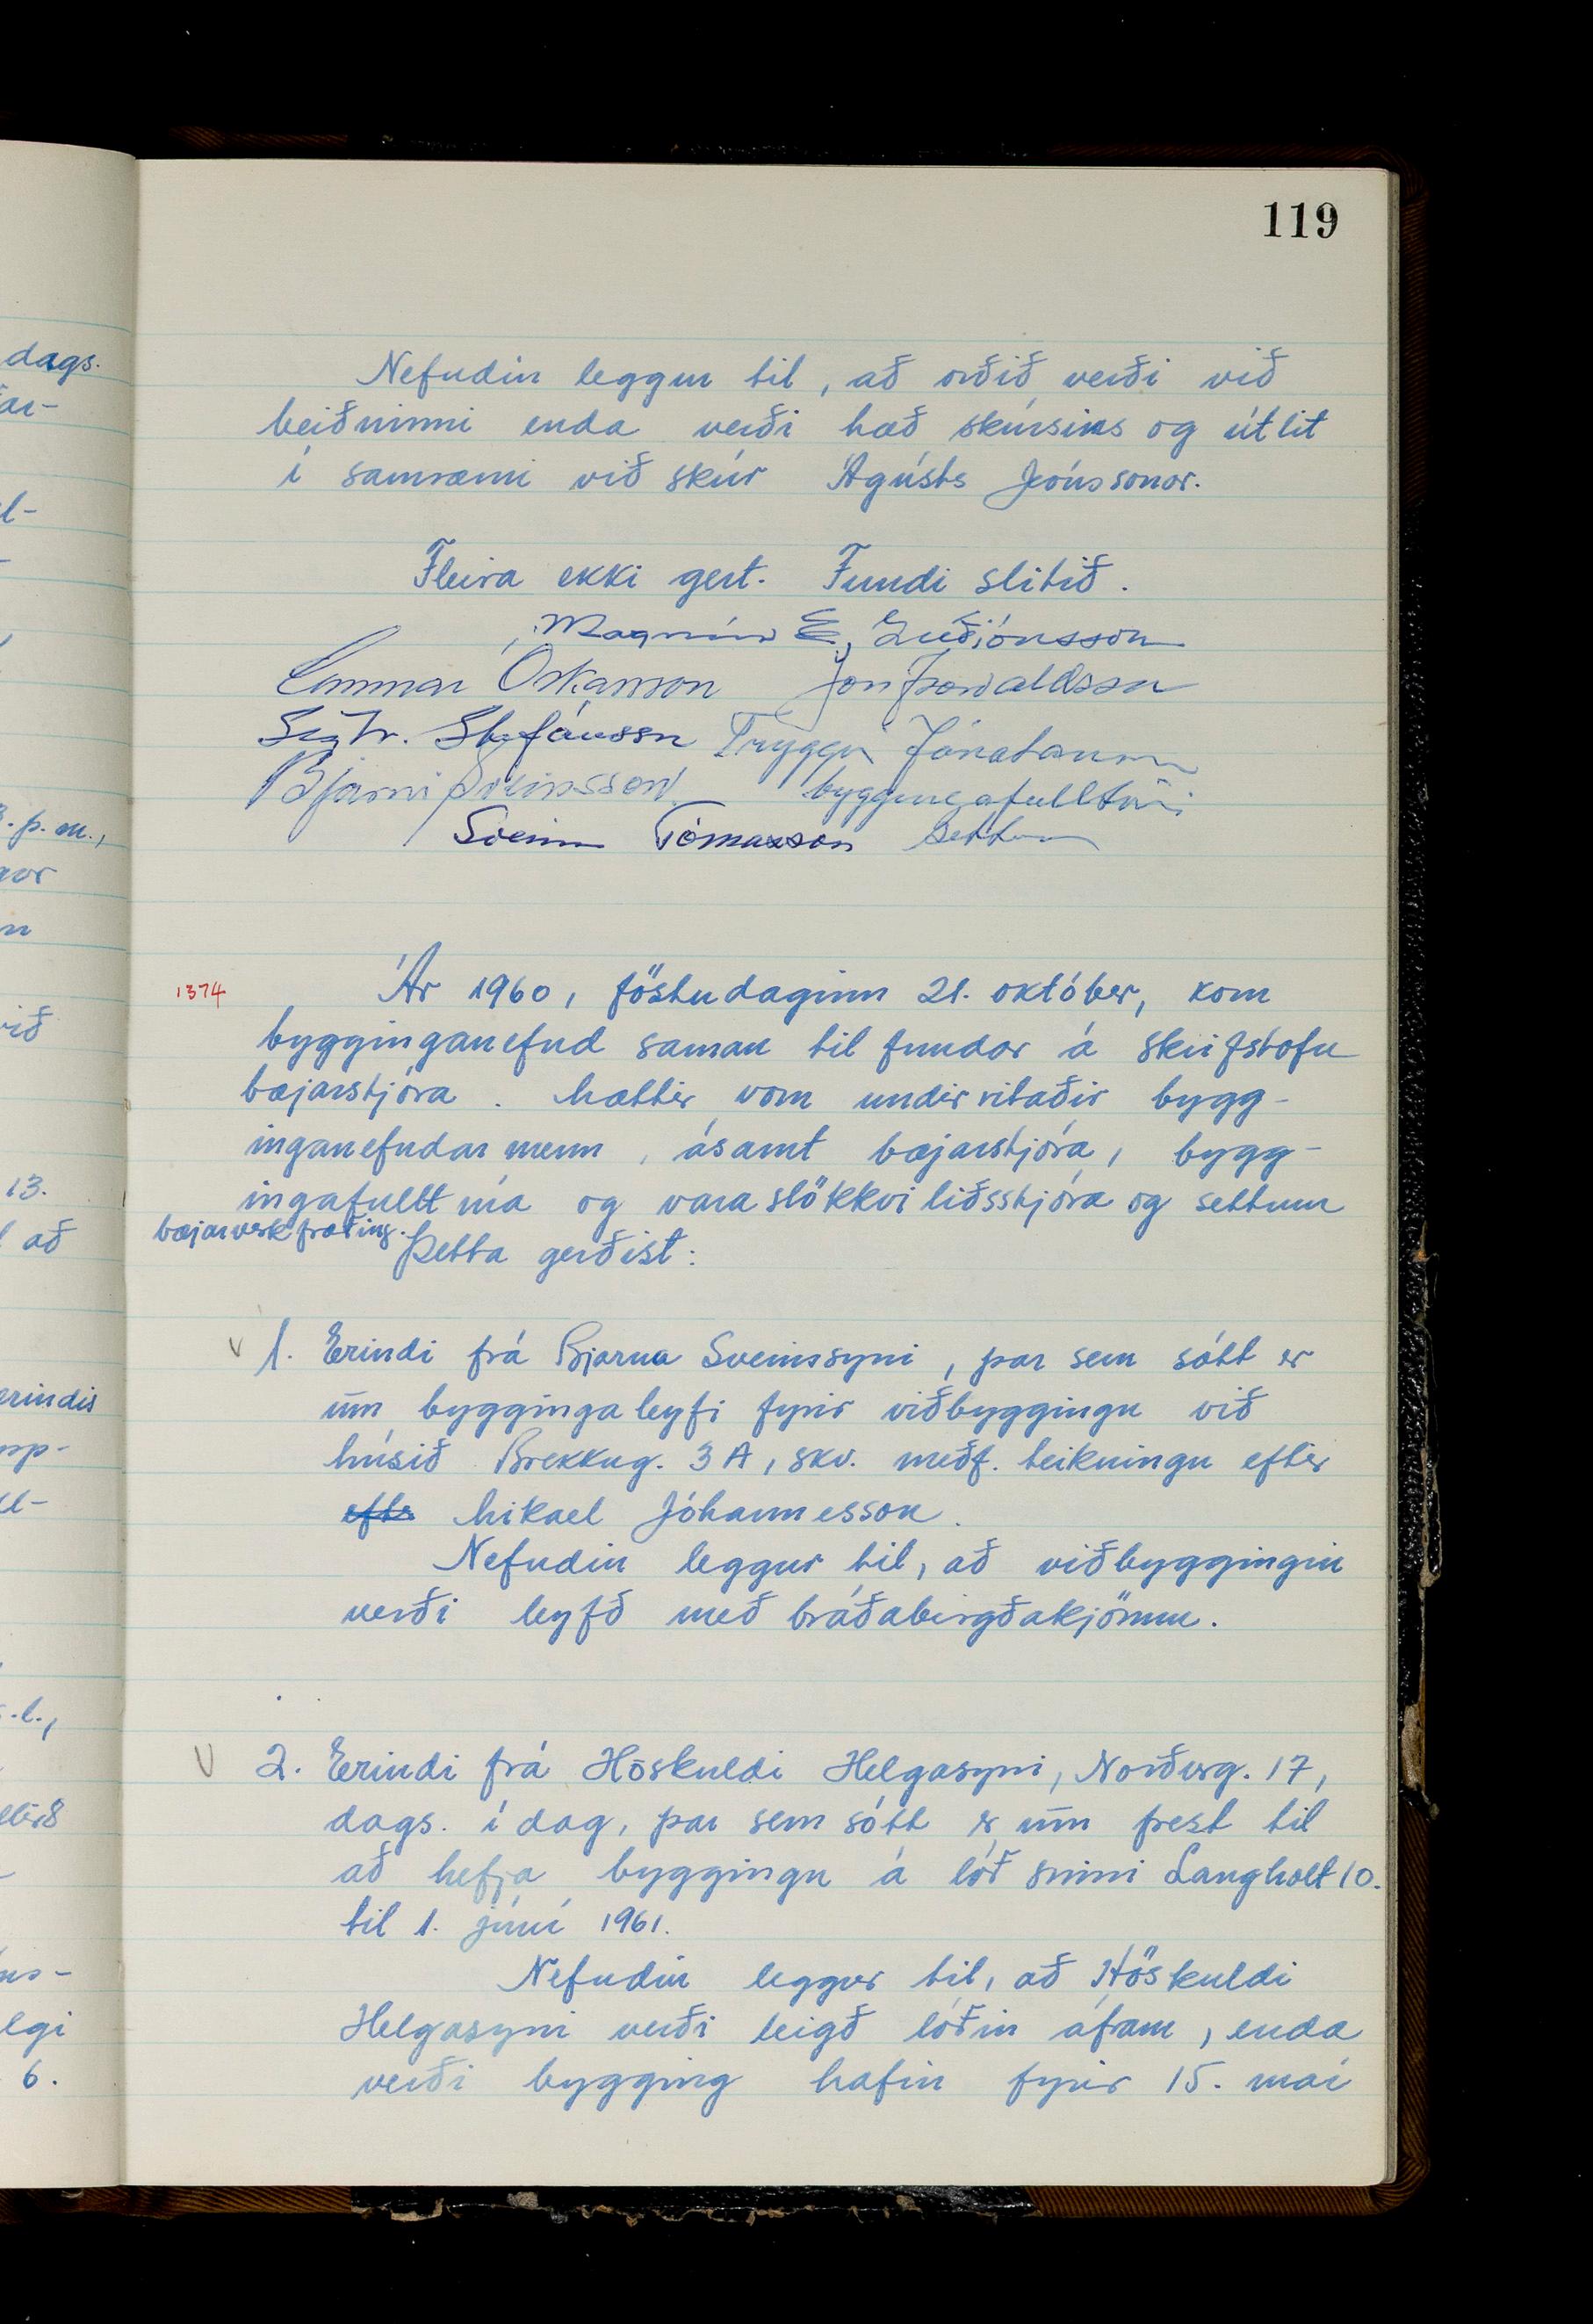 119
Nefndin leggur til, að orðið verði við
beiðninni enda verði hæð skúrsins og útlit
í samræmi við skúr Ágústs Jónssonar.
Fleira ekki gert. Fundi slitið.
Magnús E. Guðjónsson
Gunnar Óskarsson Jón Þorvaldsson
Sigtr. Stefánsson Tryggvi Jónatansson
Bjarni Sveinsson byggingafulltrúi
Sveinn Tómasson settur
1374
Ár 1960, föstudaginn 21. október, kom
bygginganefnd saman til fundar á skrifstofu
bæjarstjóra. Mættir voru undirritaðir bygg-
inganefndarmenn, ásamt bæjarstjóra, bygg-
ingafulltrúa og varaslökkviliðsstjóra og settum
bæjarverkfræðing.
Þetta gerðist:
v 1. Erindi frá Bjarna Sveinssyni, þar sem sótt er
um byggingaleyfi fyrir viðbyggingu við
húsið Brekkug. 3A, skv. meðf. teikningu eftir
eftir Mikael Jóhannesson.
Nefndin leggur til, að viðbyggingin
verði leyfð með bráðabirgðakjörum.
v 2. Erindi frá Höskuldi Helgasyni, Norðurg. 17,
dags. í dag, þar sem sótt er um frest til
að hefja byggingu á lóð sinni Langholt 10.
til 1. júní 1961.
Nefndin leggur til, að Höskuldi
Helgasyni verði leigð lóðin áfram, enda
verði bygging hafin fyrir 15. maí